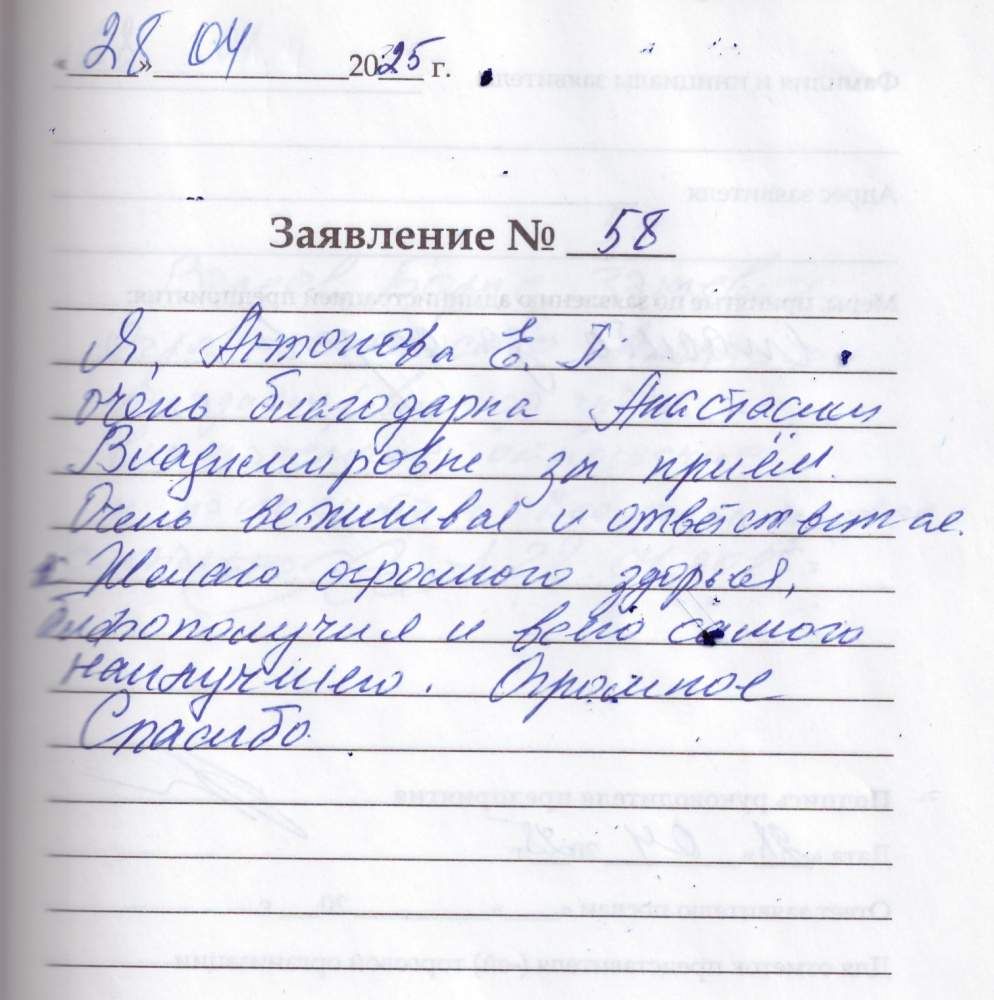 «28» 04 2025 г.
Заявление № 58
Я, Антонова Е. П.
очень благодарна Анастасии
Владимировне за приём.
Очень вежливая и ответственная.
Желаю огромного здоровья,
благополучия и всего самого
наилучшего. Огромное
Спасибо